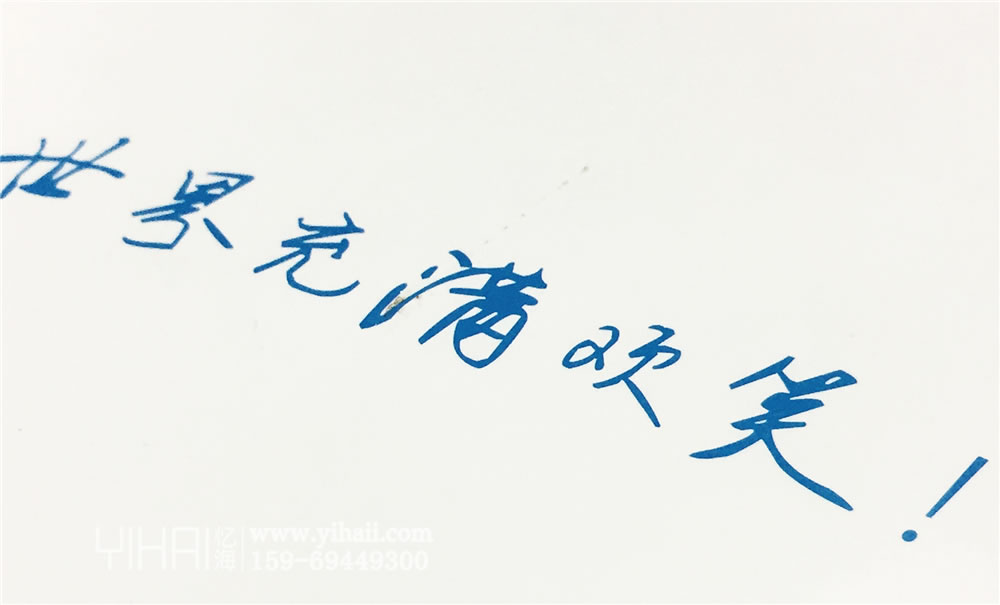 世界充满欢笑！
YIHAI 忆海
www.yihaii.com
159-69449300